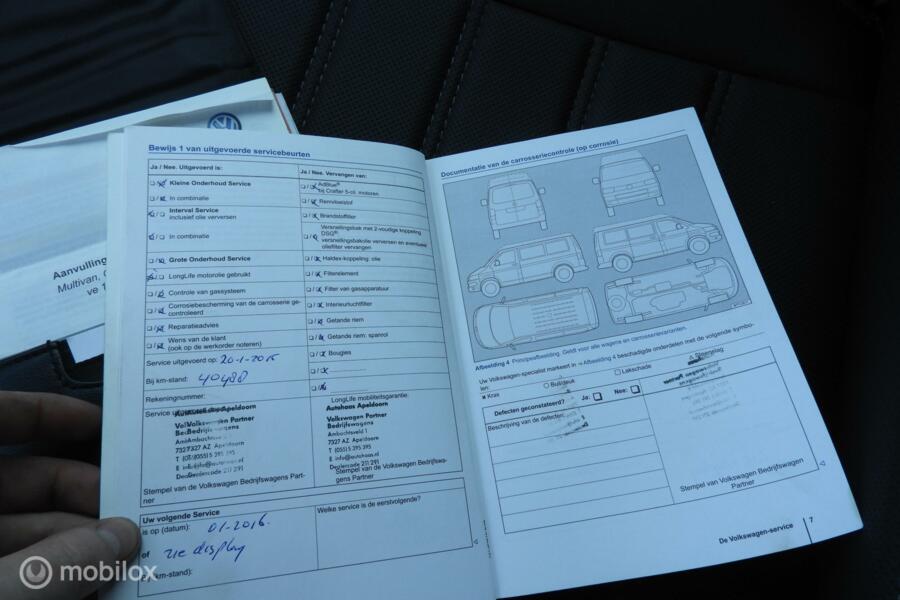 Aanvulling
Multivan, C
ve 1
Bewijs 1 van uitgevoerde servicebeurten
Ja / Nee. Uitgevoerd is:
Kleine Onderhoud Service
In combinatie
Interval Service
inclusief olie verversen
In combinatie
Grote Onderhoud Service
LongLife motorolie gebruikt
Controle van gassysteem
Corrosiebescherming van de carrosserie ge-
controleerd
Reparatieadvies
Wens van de klant
(ook op de werkorder noteren)
Service uitgevoerd op: 20-1-2015
Bij km-stand: 40488
Rekeningnummer:
Ja / Nee. Vervangen van:
AdBlue®
bij Crafter 5-cil. motoren
Remvloeistof
Brandstoffilter
Versnellingsbak met 2-voudige koppeling
DSG®:
versnellingsbakolie verversen en eventueel
oliefilter vervangen
Haldex-koppeling: olie
Filterelement
Filter van gasapparatuur
Interieurluchtfilter
Getande riem
Getande riem: spanrol
Bougies
LongLife mobiliteitsgarantie:
Autohaas Apeldoorn
Volkswagen Partner
Bedrijfswagens
Ambachtsveld 1
7327 AZ Apeldoorn
T (055) 5 395 395
E info@autohaas.nl
Dealercode 211 291
Stempel van de Volkswagen Bedrijfswagens Part-
ner
Stempel van de Volkswagen Bedrijfswa-
gens Partner
Uw volgende Service
is op (datum): 01-2016.
of zie display
(km-stand):
Welke service is de eerstvolgende?
Documentatie van de carrosseriecontrole (op corrosie)
Afbeelding 4 Principeafbeelding. Geldt voor alle wagens en carrosserievarianten.
Uw Volkswagen-specialist markeert in ⇒ Afbeelding 4 beschadigde onderdelen met de volgende symbo-
len:
× Kras
○ Buil/deuk
□ Lakschade
△ Steenslag
Defecten geconstateerd? Ja: Nee:
Beschrijving van de defecten:
Stempel van de Volkswagen Bedrijfswagens
Partner
De Volkswagen-service 7
mobilox